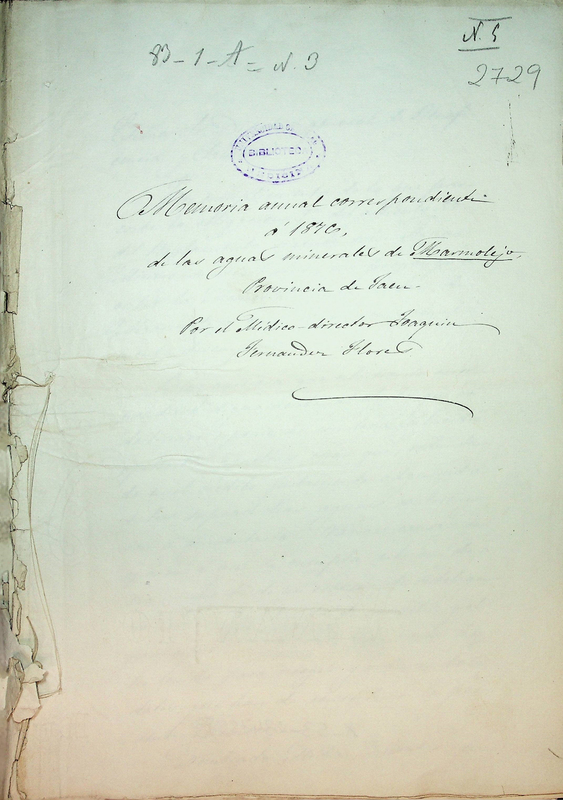 N. 5
83-1-A-N. 3
2729
BIBLIOTECA
Memoria anual correspondiente
á 1876,
de las aguas minerales de Marmolejo,
Provincia de Jaen.
Por el Médico-director Joaquin
Fernandez Flores